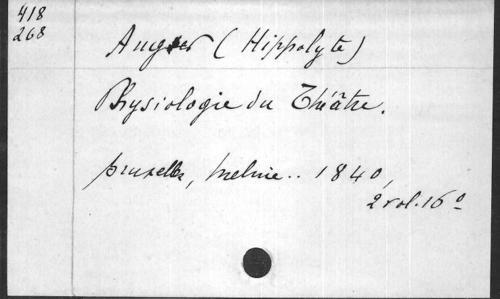 418
268
Auger (Hippolyte)
Physiologie du Théâtre.
bruxelles, Meline.. 1840,
2 vol. 16º